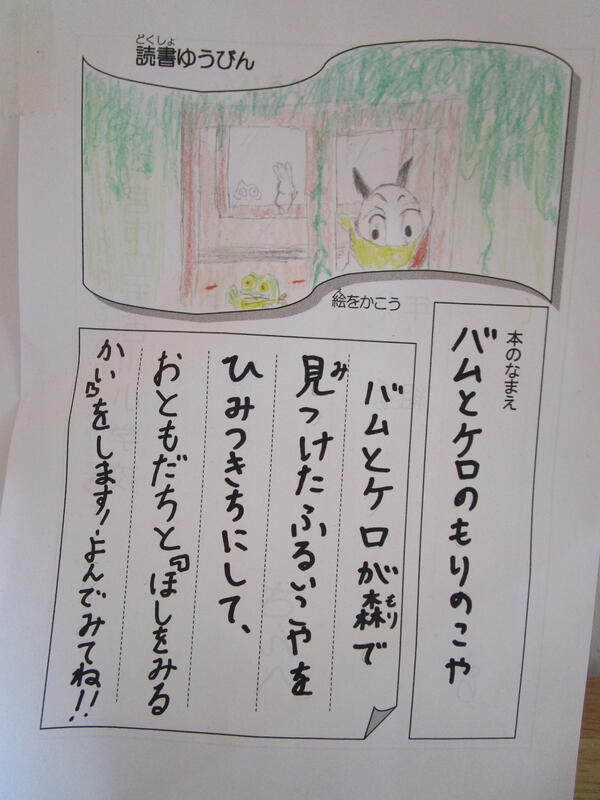 読書ゆうびん
どくしょ
絵をかこう
え
本のなまえ
バムとケロのもりのこや
バムとケロが森で
もり
見つけたふるいこやを
み
ひみつきちにして、
おともだちと『ほしをみる
かい』をします!よんでみてね!!